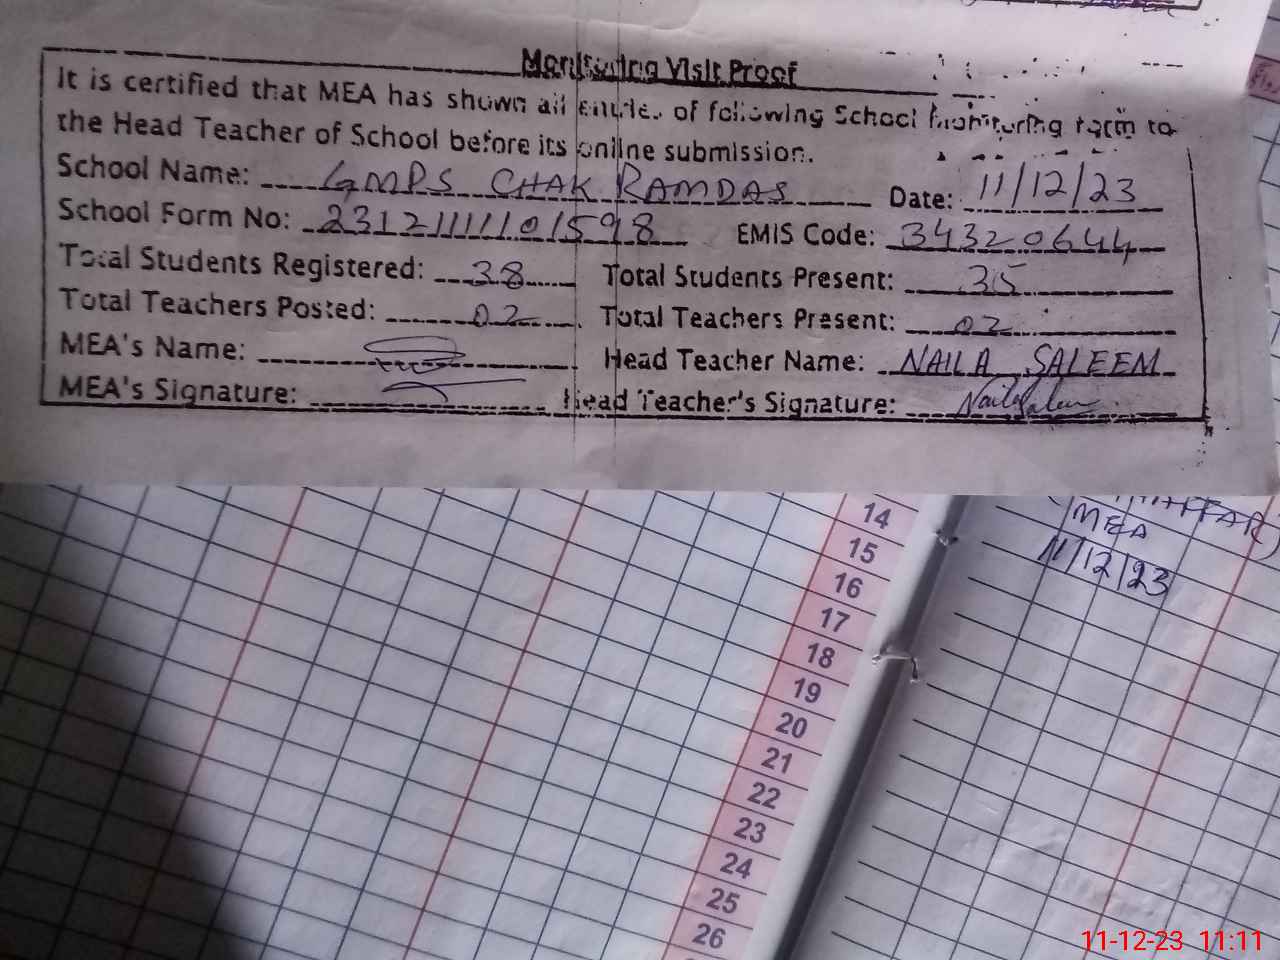 Monitoring Visit Proof
It is certified that MEA has shown all entries of following School Monitoring form to
the Head Teacher of School before its online submission.
School Name: GMPS CHAK RAMDAS Date: 11/12/23
School Form No: 23121111101598 EMIS Code: 34320644
Total Students Registered: 38 Total Students Present: 35
Total Teachers Posted: 02 Total Teachers Present: 02
MEA's Name: Head Teacher Name: NAILA SALEEM
MEA's Signature: Head Teacher's Signature: Naila Saleem
MEA
11/12/23
14
15
16
17
18
19
20
21
22
23
24
25
26
11-12-23 11:11